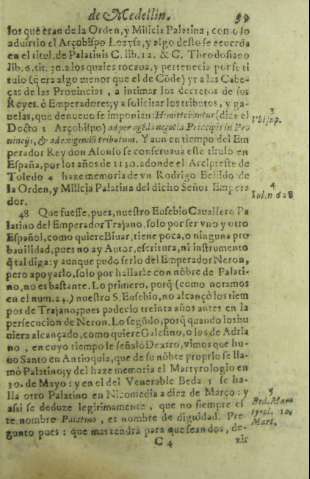 de Medellin. 59
los que eran de la Orden, y Milicia Palatina; como lo
aduirtio el Arçobispo Loaysa, y algo desto se acuerda
en el titul. de Palatinis C. lib. 12. & C. Theodosiano
lib. 6. tit. 30. a los quales tocaua, y pertenecia por su ti
tulo (q̃ era algo menor que el de Cõde) yr a las Cabe-
ças de las Prouincias, a intimar los decretos de sus
Reyes, ò Emperadores; y a solicitar los tributos, y ga-
uelas, que denueuo se imponian:
Docto Arçobispo)
Y aun en tiempo del Em
perador Rey don Alonso se conseruaua este titulo en
España, por los años de 1150. adonde el Arcipreste de
Toledo haze memoria de vn Rodrigo Bellido de
la Orden, y Milicia Palatina del dicho Señor Empera
dor.
48 Que fuesse, pues, nuestro Eusebio Cauallero Pa
latino del Emperador Trajano, solo por ser vno y otro
Español, como quiere Biuar, tiene poca, o ninguna pro
bauilidad, pues no ay Autor, escritura, ni instrumento
q̃ tal diga: y aunque pudo serlo del Emperador Neron,
pero apoyarlo, solo por hallarse con nõbre de Palati-
no, no es bastante. Lo primero, porq̃ (como notamos
en el num. 24.) nuestro S. Eusebio, no alcançò los tiem
pos de Trajano; pues padecio treinta años antes en la
persecucion de Neron. Lo segũdo, porq̃ quando los hu
uiera alcançado, como quiere Galesino, o los de Adria
no, en cuyo tiempo le señalò Dextro, vimos que hu-
uo Santo en Antioquia, que de su nõbre proprio se lla-
mò Palatino; y del haze memoria el Martyrologio en
30. de Mayo: y en el del Venerable Beda se ha-
lla otro Palatino en Nicomedia a diez de Março: y
assi se deduze legitimamente, que no siempre es
te nombre Palatino, es nombre de dignidad. Pre
gunto pues: que mas tendrà para que sean dos, de-
C 4
3
4
5
Bed. Mart
10.
Mart.